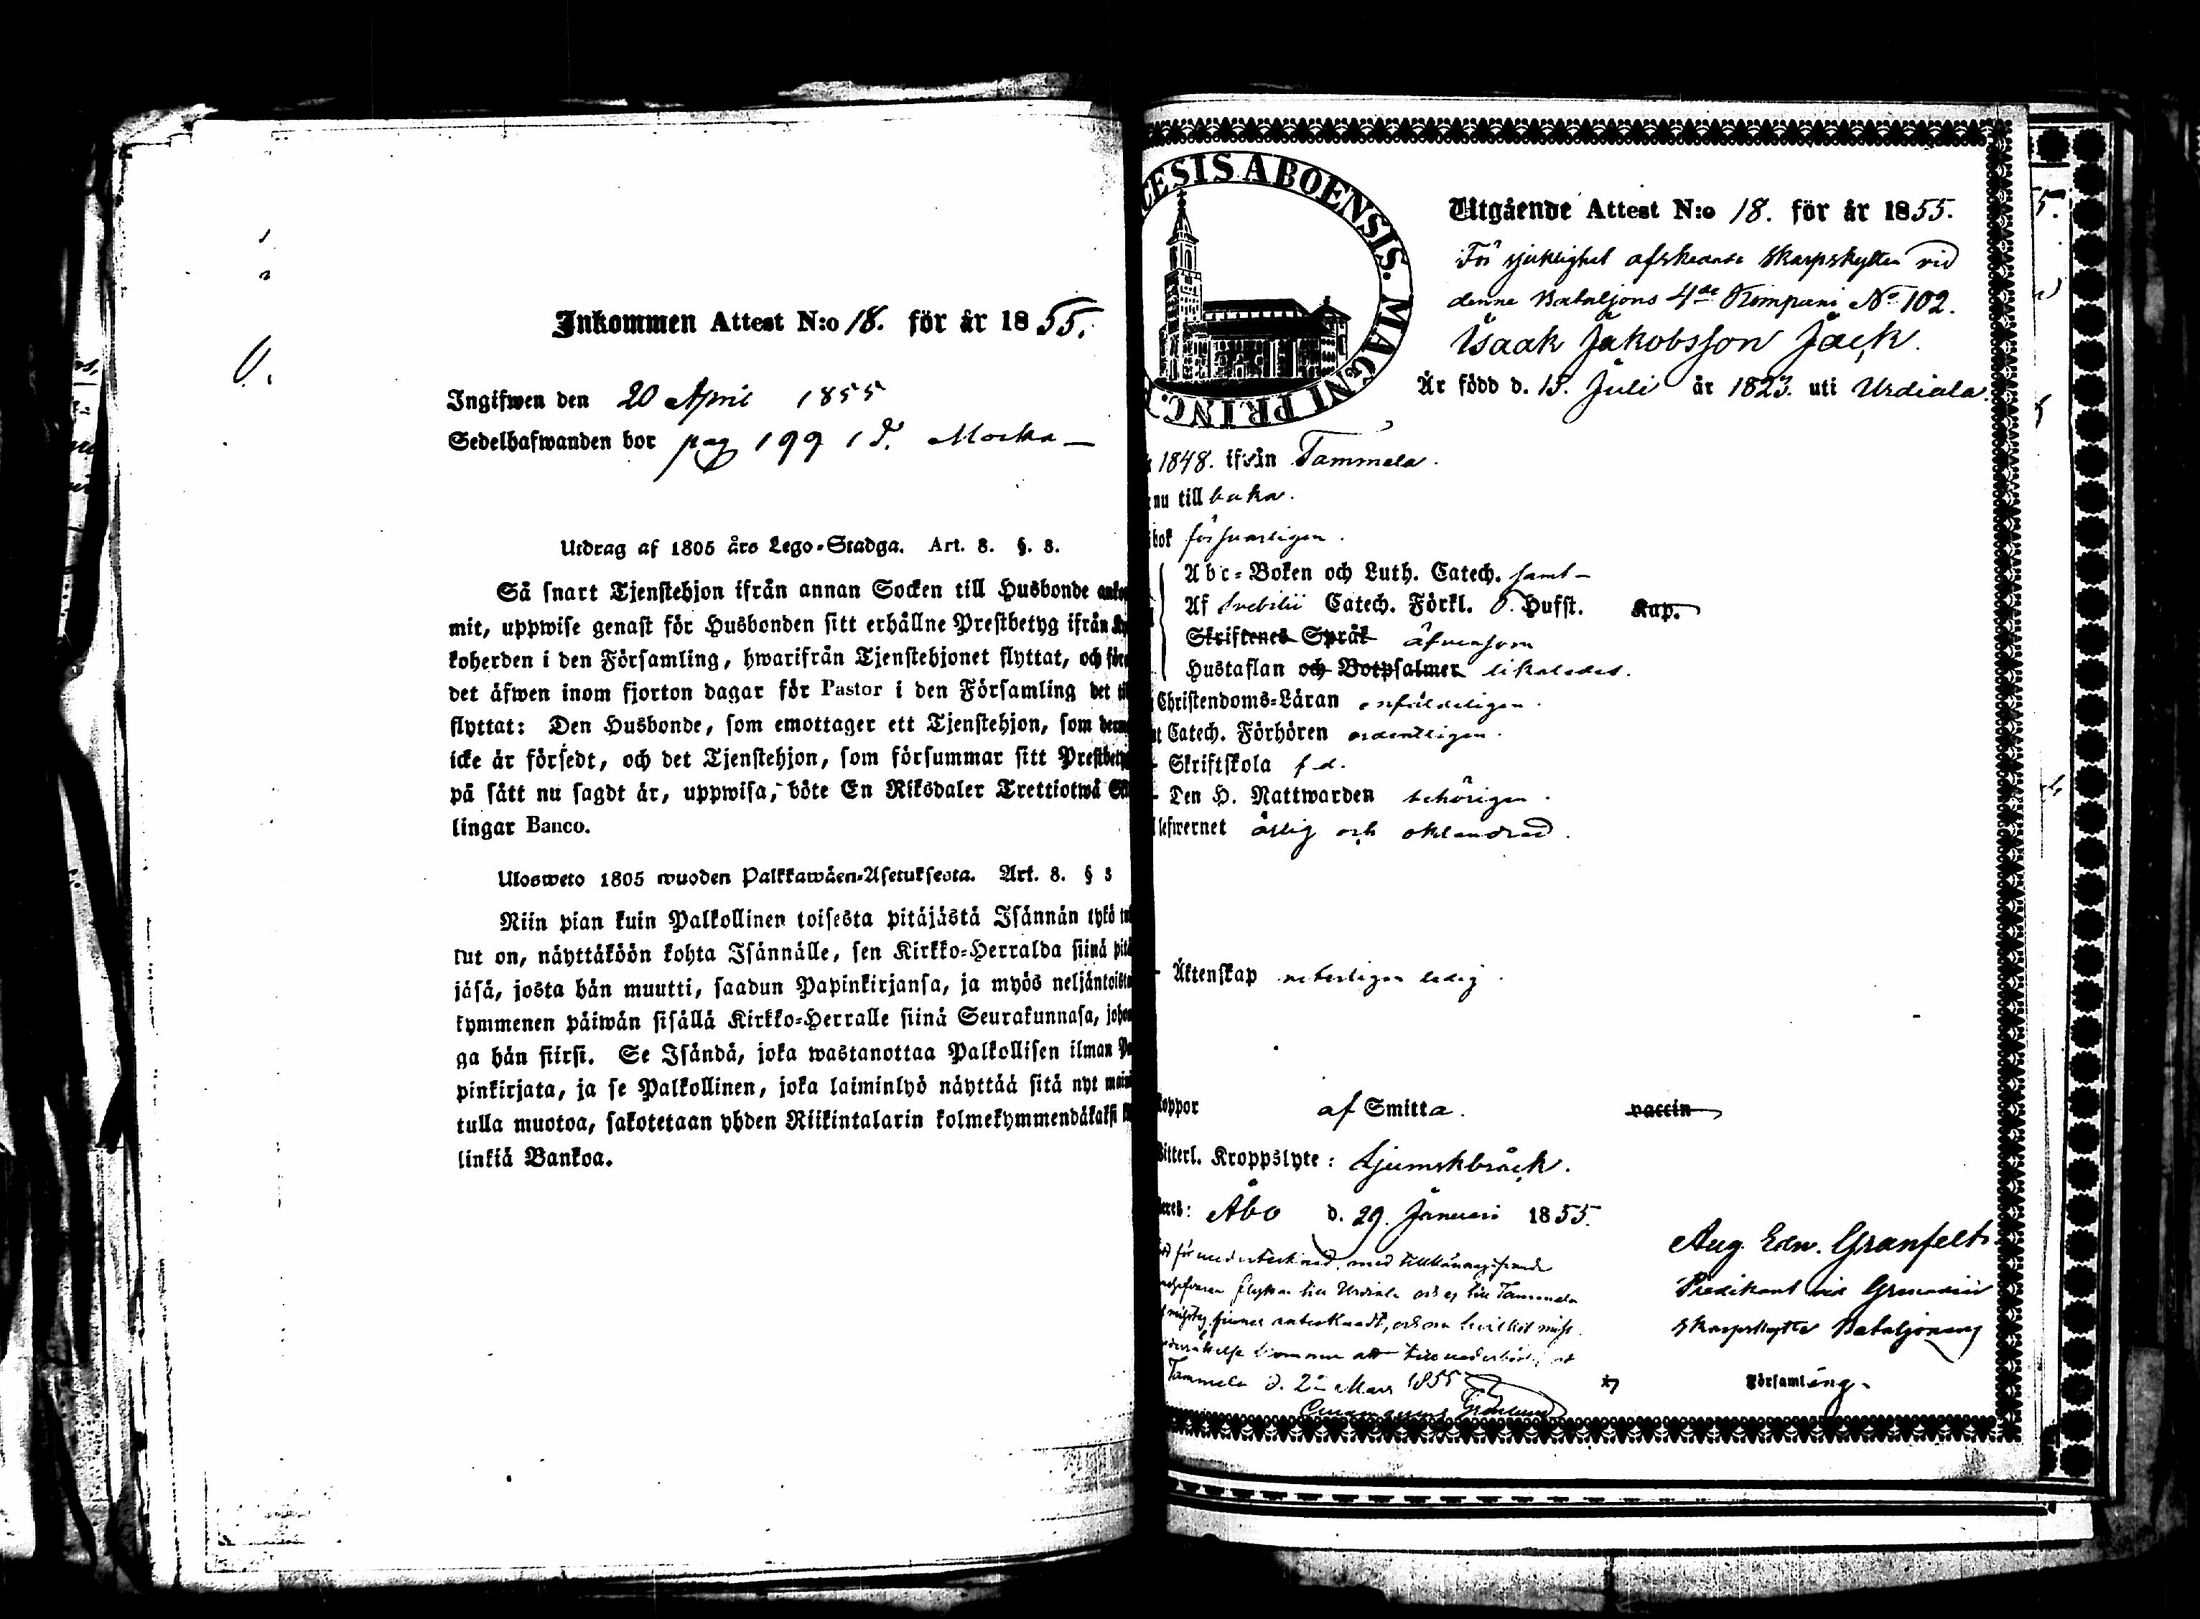 Inkommen Attest N:o 18. för år 1855.
Ingifwen den 20 April 1855
Sedelhafwanden bor pag 199 Mocka
Utdrag af 1805 års Lego-Stadga. Art. 8. §. 3.
Så snart Tjenstehjon ifrån annan Socken till Husbonde
mit, uppwise genast för Husbonden sitt erhållne Prestbetyg ifrån
koherden i den Församling, hwarifrån Tjenstehjonet flyttat, och
det äfwen inom fjorton dagar för Pastor i den Församling det
flyttat: Den Husbonde, som emottager ett Tjenstehjon, som
icke är försedt, och det Tjenstehjon, som försummar sitt
på sätt nu sagdt är, uppwisa, böte En Riksdaler Trettiotwå
lingar Banco.
Ulosweto 1805 wuoden Palkkawäen-Asetuksesta. Art. 8. § 3
Niin pian kuin Palkollinen toisesta pitäjästä Isännän tykö
lut on, näyttäköön kohta Isännälle, sen Kirkko-Herralda siinä
jäsä, josta hän muutti, saadun Papinkirjansa, ja myös
kymmenen päiwän sisällä Kirkko-Herralle siinä Seurakunnasa,
ga hän siirsi. Se Isändä, joka wastanottaa Palkollisen ilman
pinkirjata, ja se Palkollinen, joka laiminlyö näyttää sitä nyt
tulla muotoa, sakotetaan yhden Riikintalarin kolmekymmendäkaksi
linkiä Bankoa.
CESIS ABOENSIS. MAGNI PRINC.
Utgående Attest N:o 18. för år 1855.
För sjuklighet afskedade Skarpskytten vid
denne Bataljons 4de Kompani No 102.
Isaak Jakobsson Jäck.
Är född d. 15. Juli år 1823. uti Urdiala.
1848. ifrån Tammela.
nu till baka.
bok försvarligen.
Abc-Boken och Luth. Catech. samt
Af Svebilii Catech. Förkl. Hufst. Kap.
Skriftenes Språk äfvensom
Hustaflan och Botpsalmer likaledes.
Christendoms-Läran enfaldeligen.
Catech. Förhören ordentligen.
Skriftskola
Den H. Nattwarden behörigen.
lefwernet ärlig och oklandrad.
Äktenskap veterligen ledig.
Koppor af Smitta. vaccin
Witterl. Kroppslyte: Ljumskbråck.
Åbo d. 29. Januari 1855.
Aug. Edw. Granfelt.
Predikant vid Grenadier
Skarpskytte Bataljonens
Församling.
med tillkännagifvande
flyttar till Urdiala och ej till Tammela
Tammela d. Mars 1855